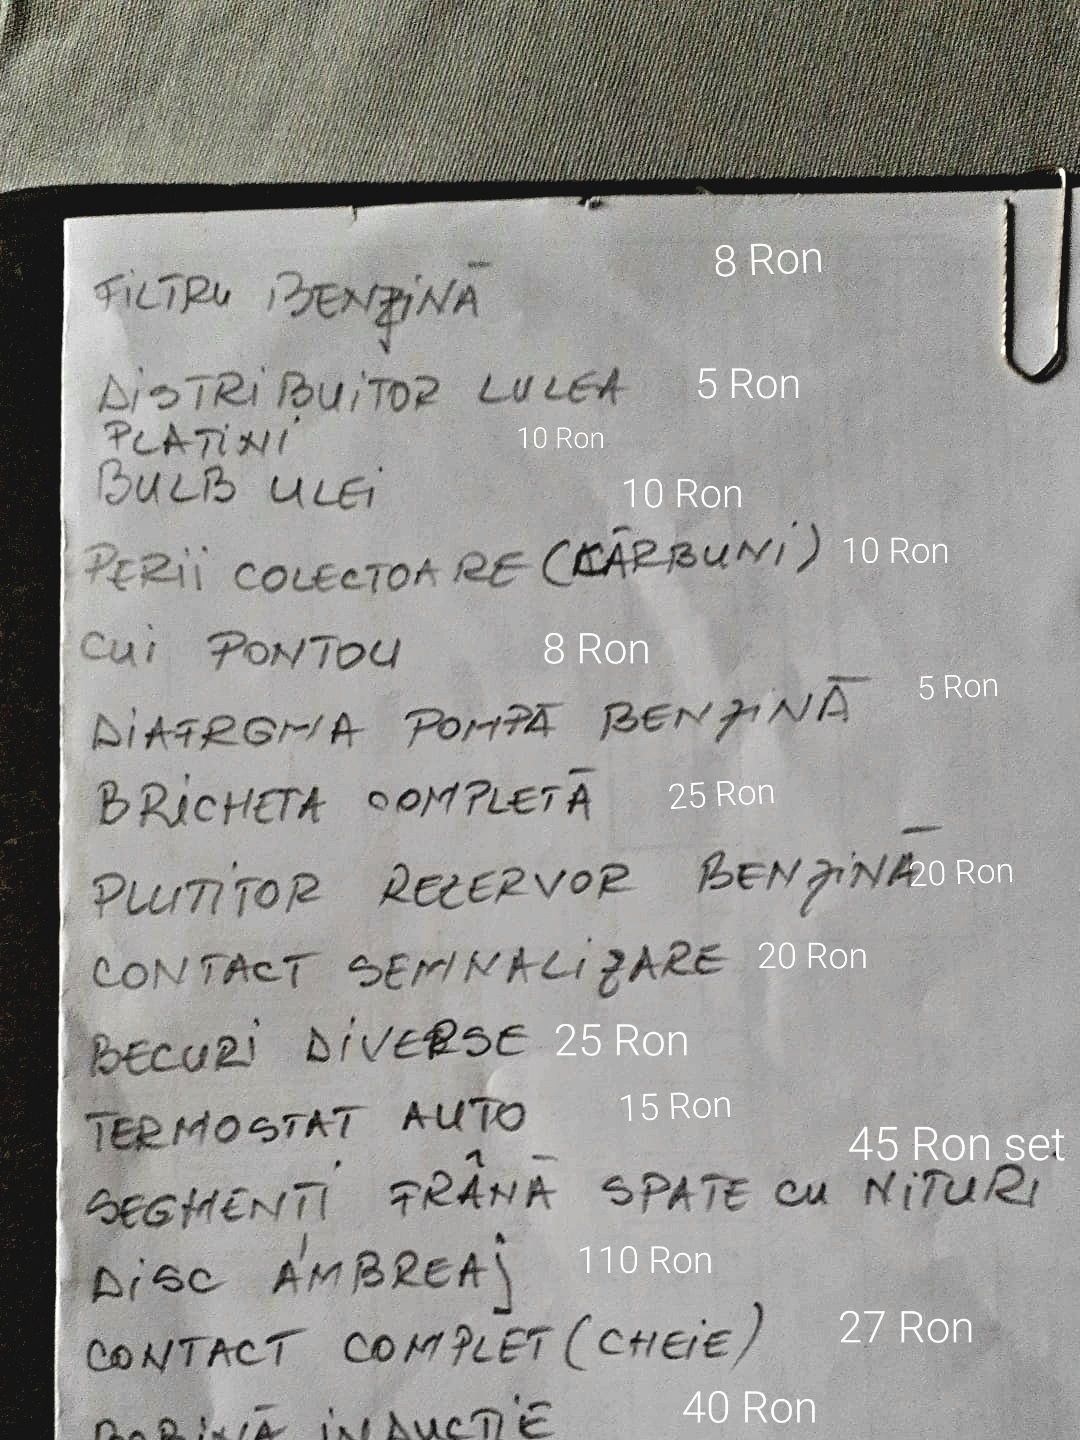 FILTRU BENZINĂ 8 Ron
DISTRIBUITOR LULEA 5 Ron
PLATINI 10 Ron
BULB ULEI 10 Ron
PERII COLECTOARE (CĂRBUNI) 10 Ron
CUI PONTOU 8 Ron
DIAFRGMA POMPĂ BENZINĂ 5 Ron
BRICHETA COMPLETĂ 25 Ron
PLUTITOR REZERVOR BENZINĂ 20 Ron
CONTACT SEMNALIZARE 20 Ron
BECURI DIVERSE 25 Ron
TERMOSTAT AUTO 15 Ron
SEGMENTI FRÂNĂ SPATE CU NITURI 45 Ron set
DISC AMBREAJ 110 Ron
CONTACT COMPLET (CHEIE) 27 Ron
BOBINĂ INDUCTIE 40 Ron